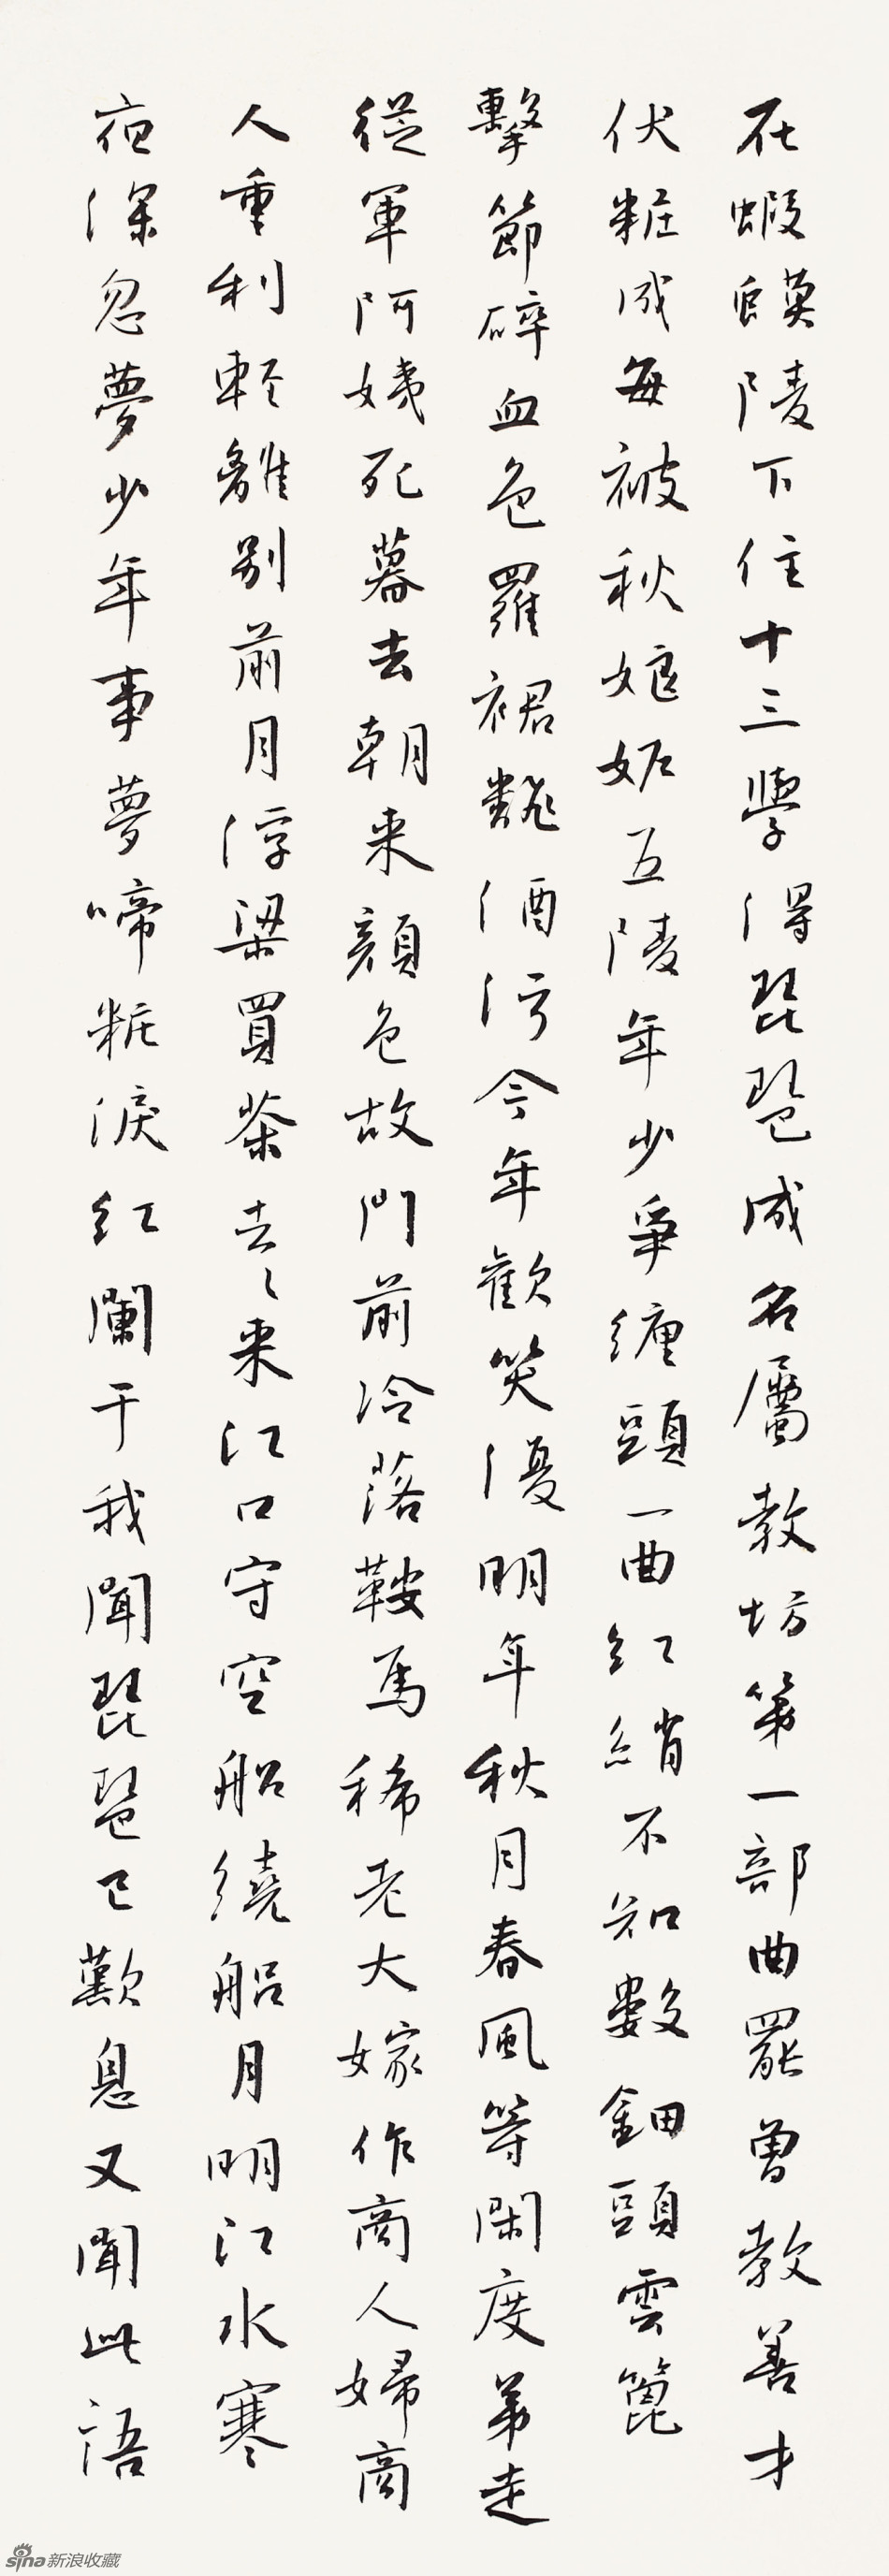 在蝦蟆陵下住十三學得琵琶成名屬教坊第一部曲罷曾教善才
伏粧成每被秋娘妬五陵年少爭纏頭一曲紅綃不知數鈿頭雲篦
擊節碎血色羅裙飜酒污今年歡笑復明年秋月春風等閑度弟走
從軍阿姨死暮去朝來顏色故門前冷落鞍馬稀老大嫁作商人婦商
人重利輕離別前月浮梁買茶去々來江口守空船繞船月明江水寒
夜深忽夢少年事夢啼粧淚紅闌干我聞琵琶已歎息又聞此語
sina新浪收藏